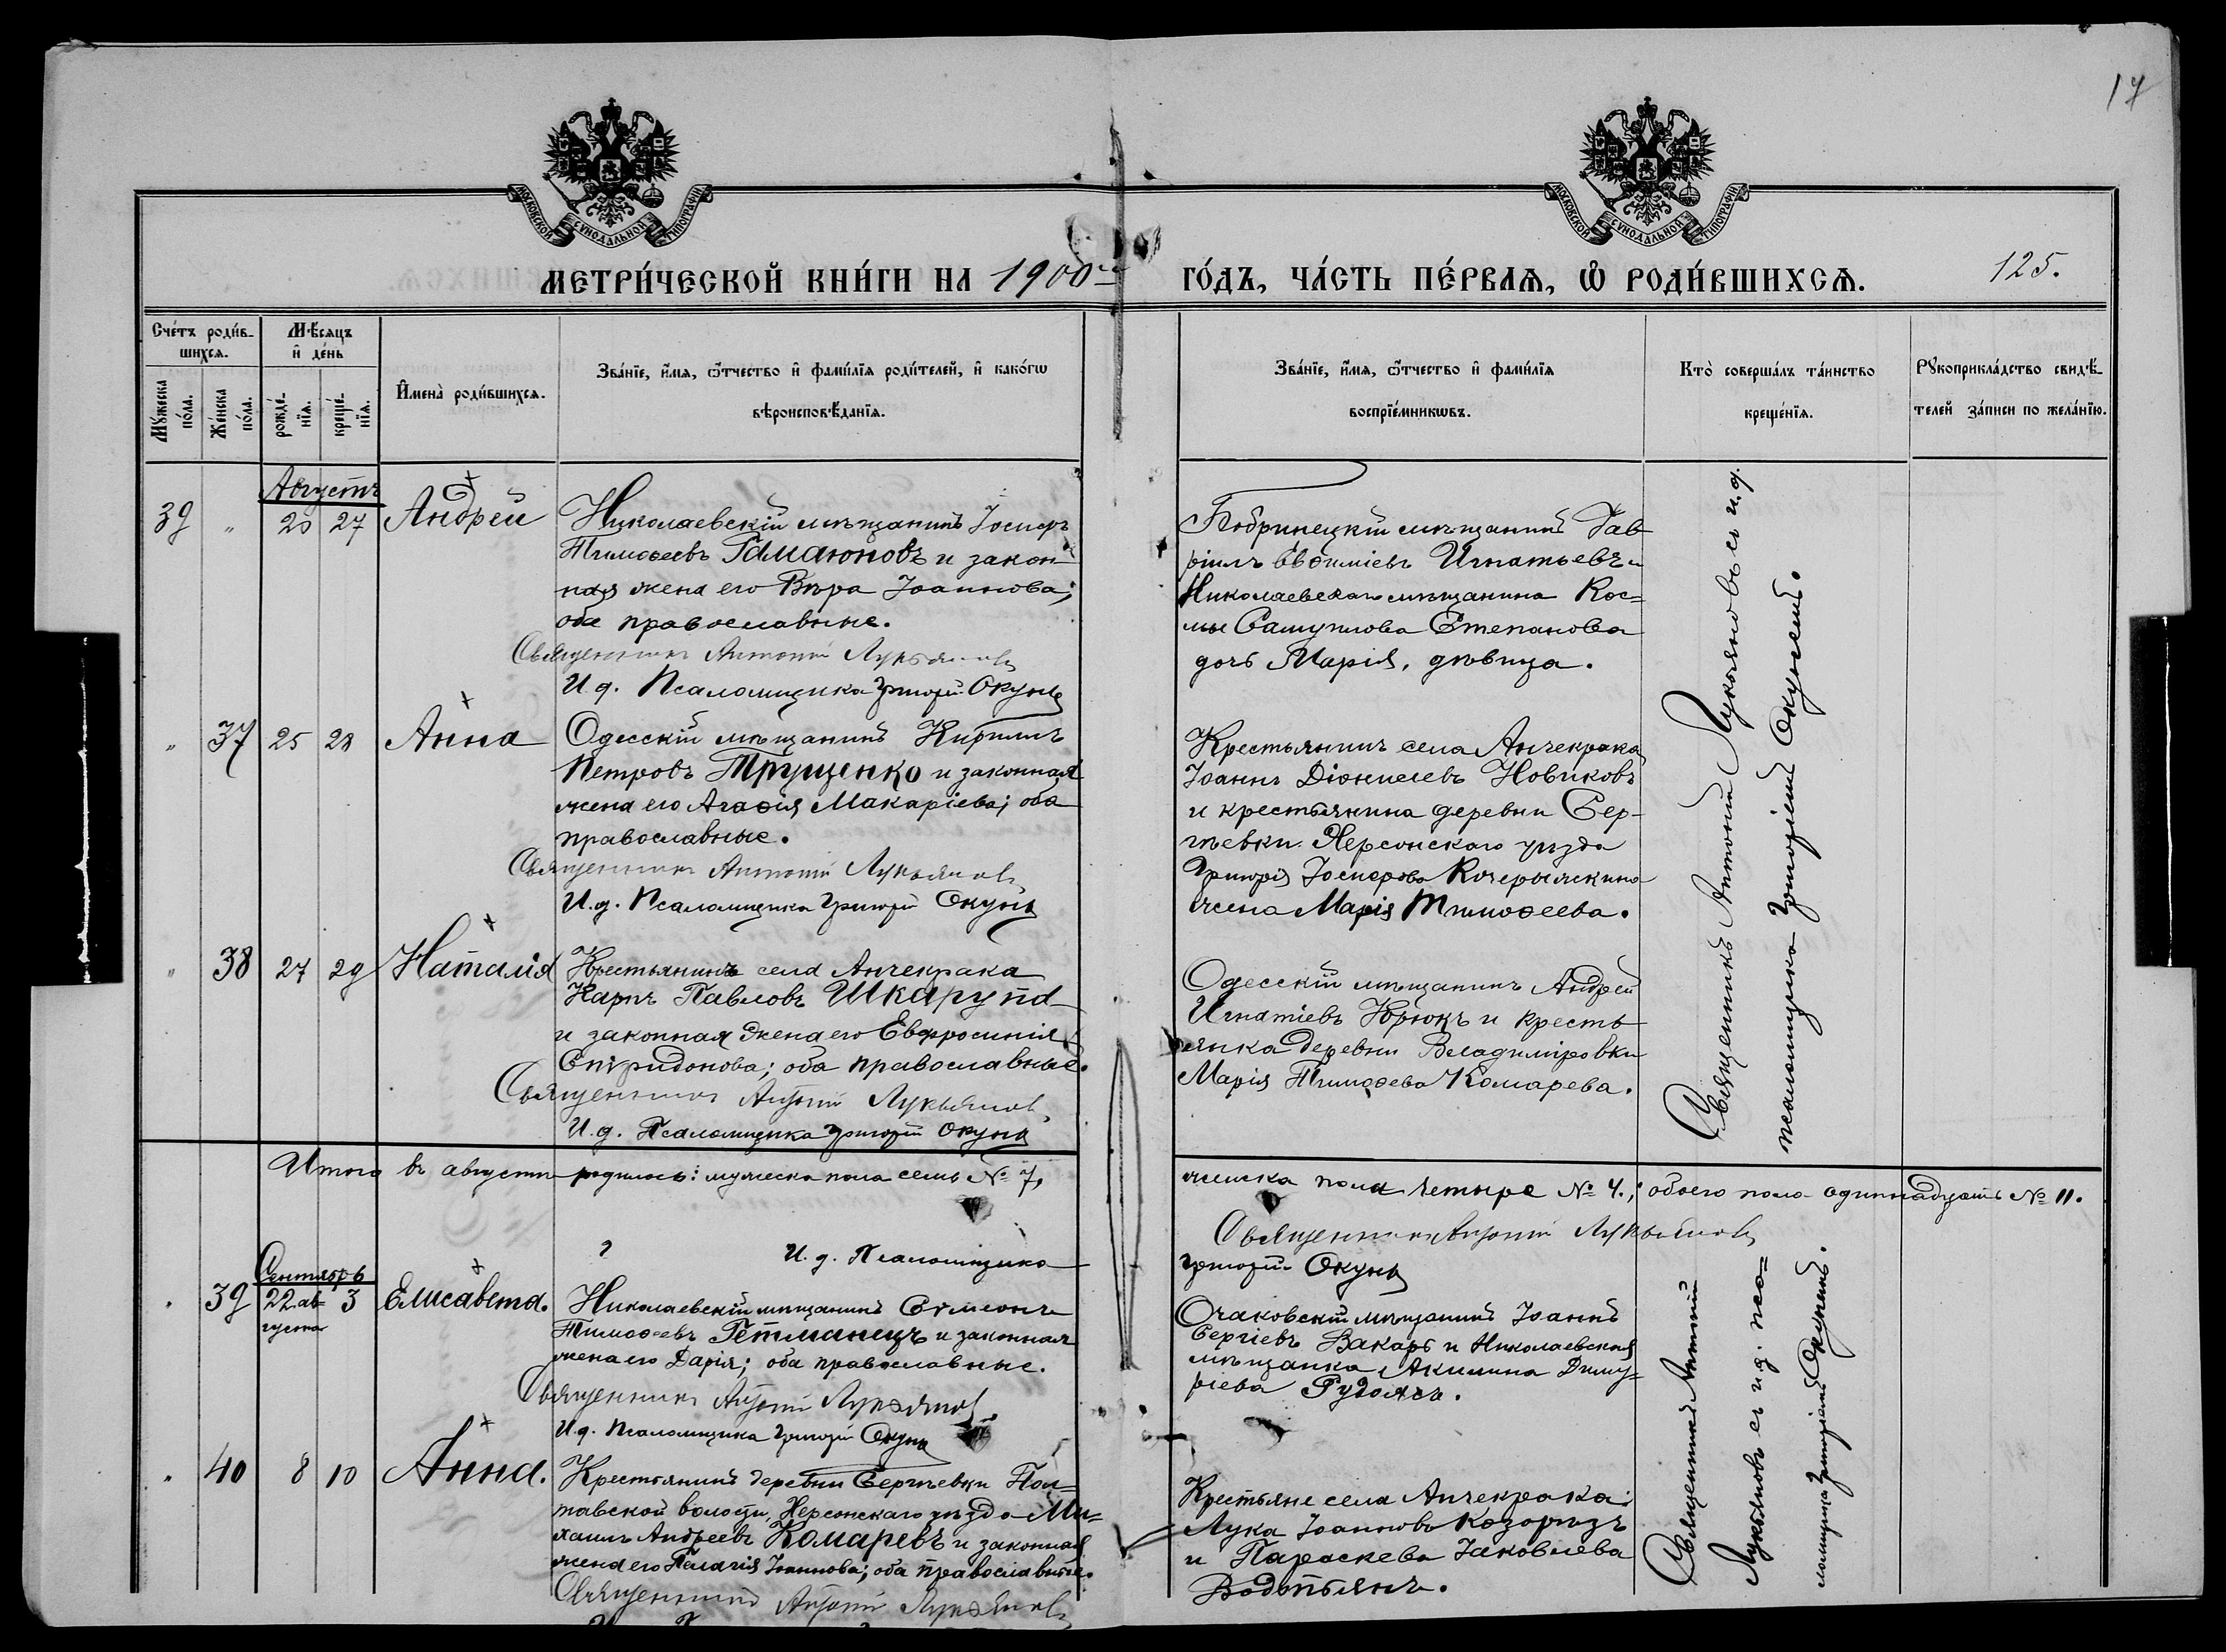 17
МОСКОВСКОЙ СѴНОДАЛЬНОЙ ТИПОГРАФІИ
МОСКОВСКОЙ СѴНОДАЛЬНОЙ ТИПОГРАФІИ
МЕТРИ́ЧЕСКОЙ КНИ́ГИ НА 1900 ГО́ДЪ, ЧА́СТЬ ПЕ́РВАѦ, Ѡ҆ РОДИ́ВШИХСѦ.
125.
Сче́тъ роди́в-
шихсѧ.
Мꙋ́жеска по́ла.
Же́нска по́ла.
Мѣ́сѧцъ
и҆ де́нь
рожде́-
нїѧ.
креще́-
нїѧ.
И҆мена̀ роди́вшихсѧ.
Зва́нїе, и҆́мѧ, ѻ҆́тчество и҆ фами́лїѧ роди́телей, и҆ како́гѡ
вѣроисповѣ́данїѧ.
Зва́нїе, и҆́мѧ, ѻ҆́тчество и҆ фами́лїѧ
воспрїе́мникѡвъ.
Кто̀ соверша́лъ та́инство
креще́нїѧ.
Рꙋкоприкла́дство свидѣ́-
телей за́писи по жела́нїю.
Августъ
39 " 20 27 Андрей
Николаевскій мѣщанинъ Іосифъ
Тимоѳеевъ Гамаюновъ и закон-
ная жена его Вѣра Іоаннова;
оба православные.
Священникъ Антоній Лукьяновъ
И. д. Псаломщика Григорій Окунь
Бобринецкій мѣщанинъ Гав-
ріилъ Евѳиміевъ Игнатьевъ и
Николаевскаго мѣщанина Кос-
мы Самуилова Степанова
дочь Марія, дѣвица.
" 37 25 28 Анна
Одесскій мѣщанинъ Кириллъ
Петровъ Трущенко и законная
жена его Агаѳія Макаріева; оба
православные.
Священникъ Антоній Лукьяновъ
И. д. Псаломщика Григорій Окунь
Крестьянинъ села Анчекрака
Іоаннъ Діонисіевъ Новиковъ
и крестьянина деревни Сер-
гѣевки Херсонскаго уѣзда
Григорія Іосифова
жена Марія Тимоѳеева.
" 38 27 29 Наталія
Крестьянинъ села Анчекрака
Карпъ Павловъ Шкарупа
и законная жена его Евфросинія
Спиридонова; оба православные.
Священникъ Антоній Лукьяновъ
И. д. Псаломщика Григорій Окунь
Одесскій мѣщанинъ Андрей
Игнатіевъ Крюкъ и кресть-
янка деревни Владиміровки
Марія Тимоѳеева Комарева.
Священникъ Антоній Лукьяновъ съ и. д.
псаломщика Григоріемъ Окунемъ.
Итого въ августѣ родилось: мужеска пола семь № 7, женска пола четыре № 4.; обоего пола одиннадцать № 11.
Священникъ Антоній Лукьяновъ
И. д. Псаломщика Григорій Окунь
Сентябрь
" 39 22 ав- 3 Елисавета.
густа
Николаевскій мѣщанинъ Симеонъ
Тимоѳеевъ Гетманецъ и законная
жена его Дарія; оба православные.
Священникъ Антоній Лукьяновъ.
И. д. Псаломщика Григорій Окунь
Очаковскій мѣщанинъ Іоаннъ
Сергіевъ Вакарь и Николаевская
мѣщанка Акилина
" 40 8 10 Анна.
Крестьянинъ деревни Сергѣевки Пол-
тавской волости, Херсонскаго уѣзда Ми-
хаилъ Андреевъ Комаревъ и законная
жена его Пелагія Іоаннова; оба православные.
Священникъ Антоній Лукьяновъ
Крестьяне села Анчекрака:
Лука Іоанновъ Козоризъ
и Параскева Іаковлева
Водопьянъ.
Священникъ Антоній
Лукьяновъ съ и. д. пса-
ломщика Григоріемъ Окунемъ.